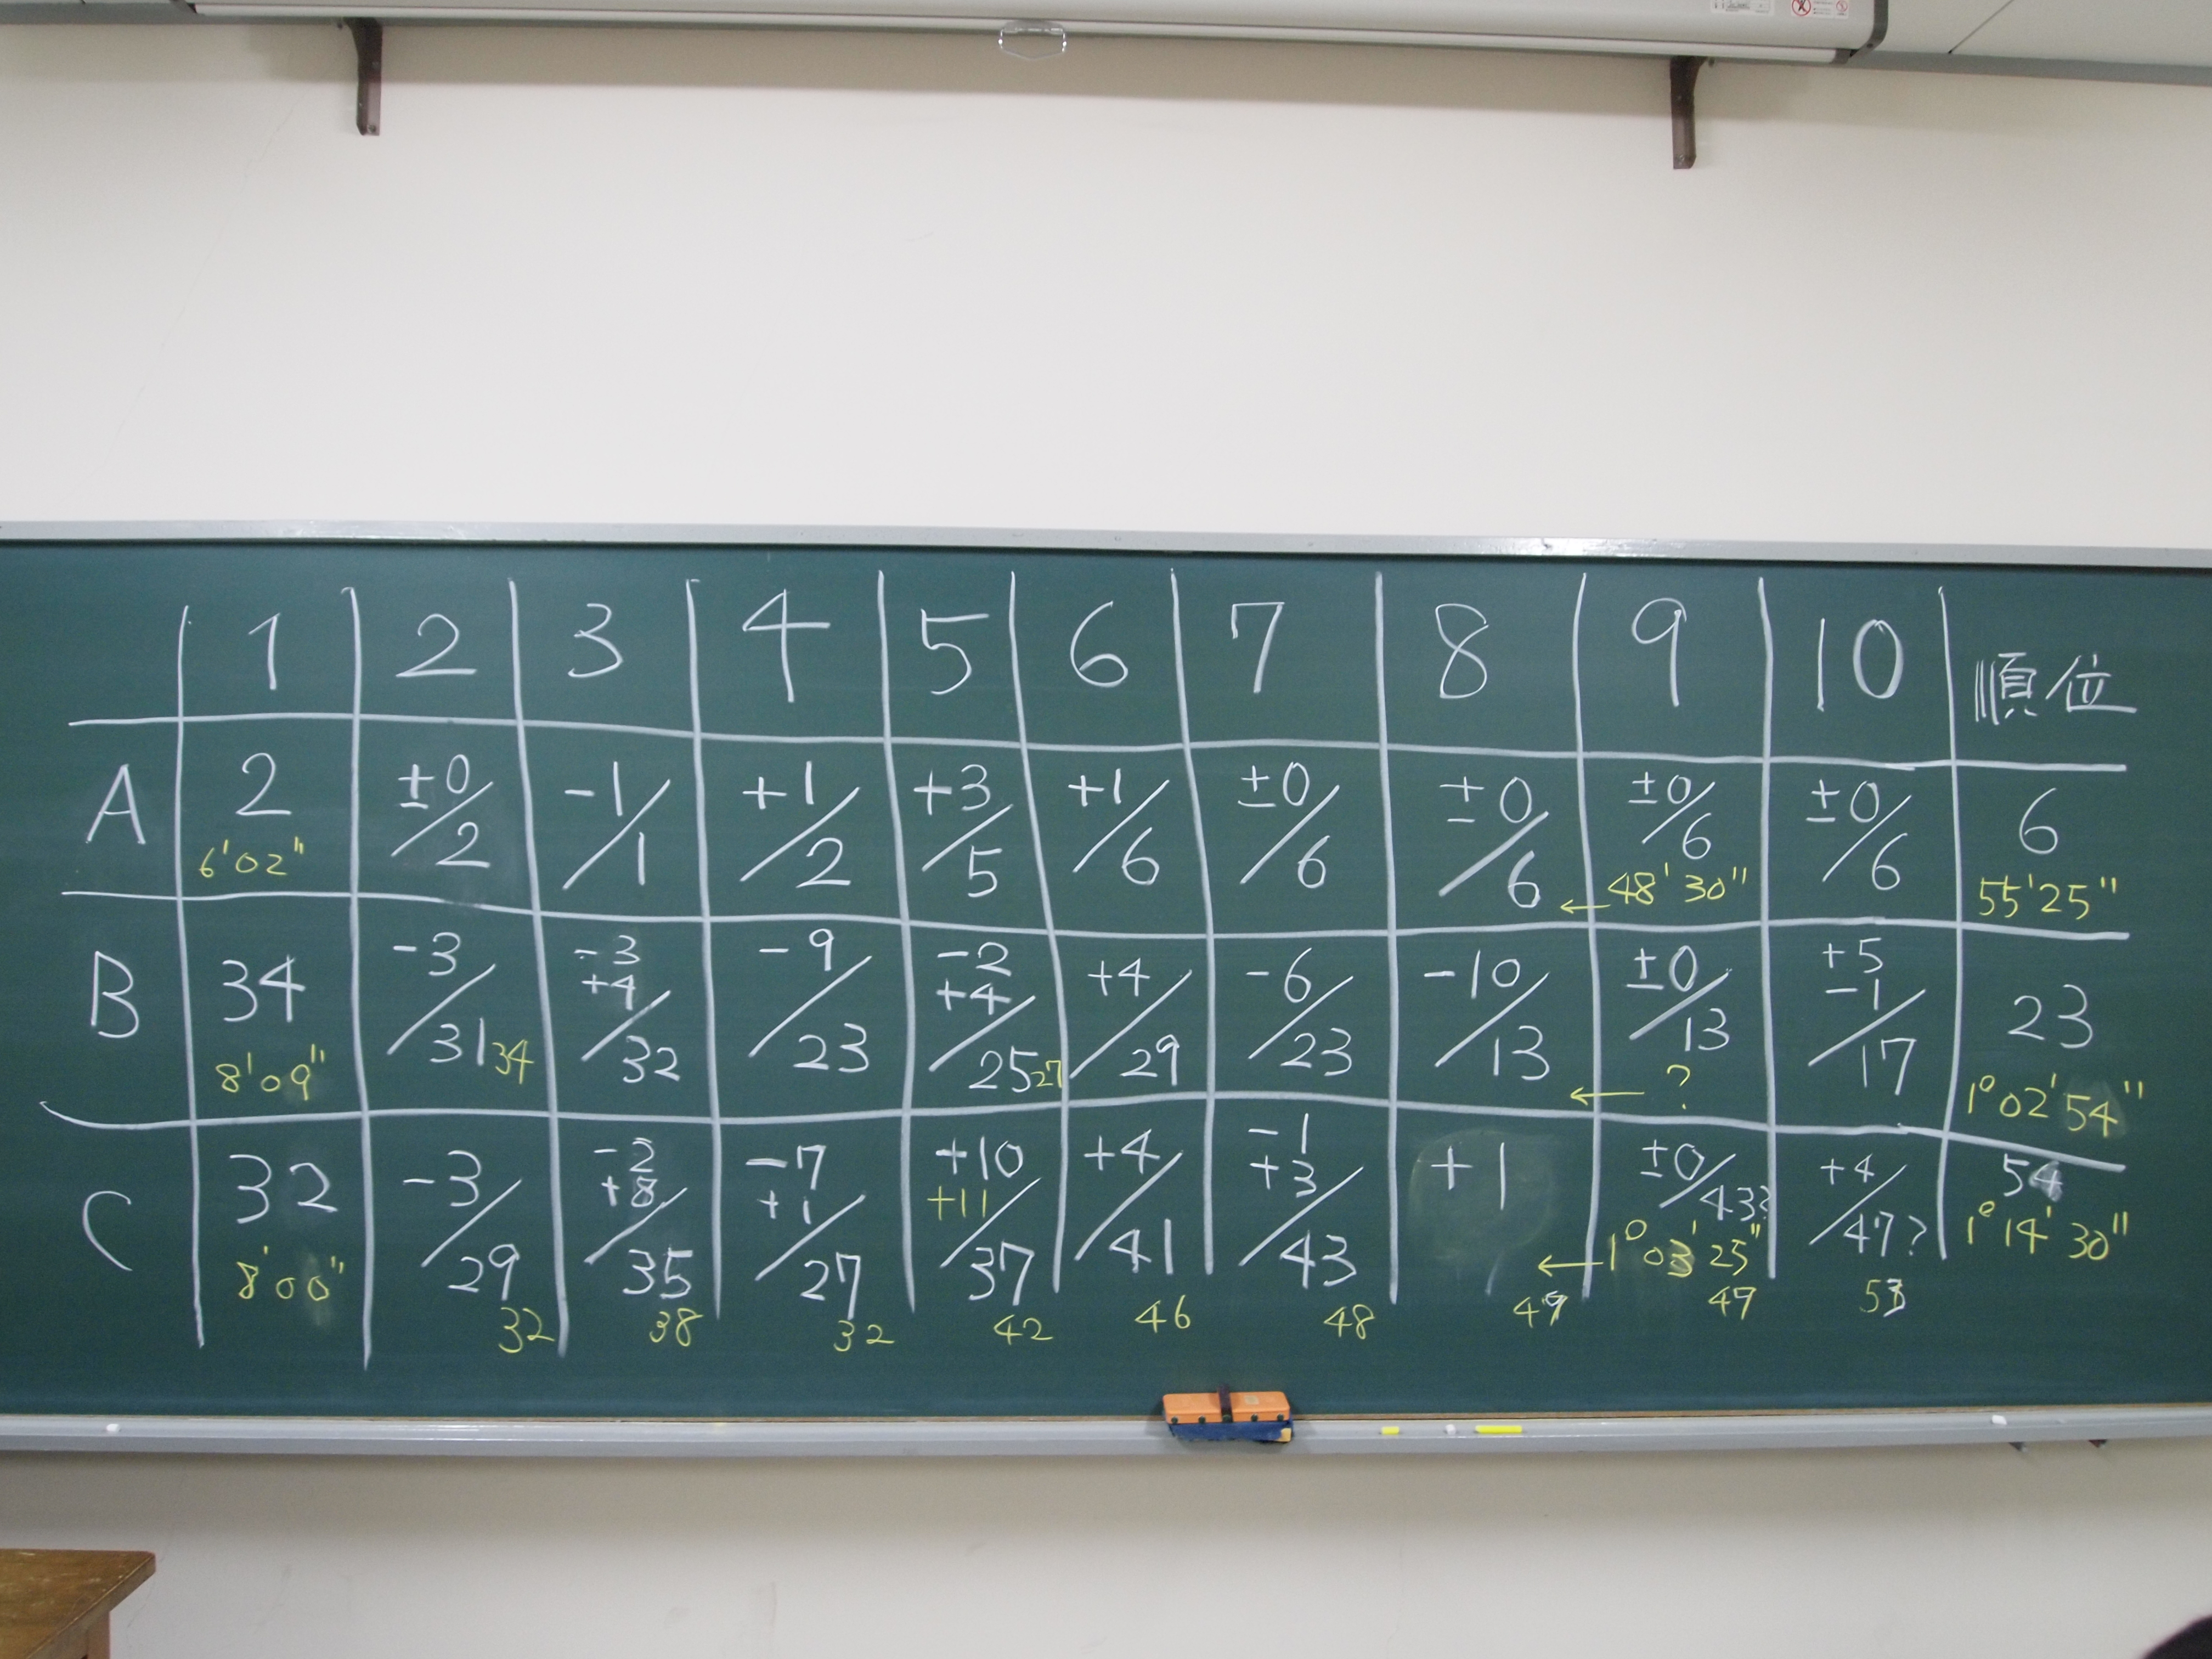 1 2 3 4 5 6 7 8 9 10 順位
A 2 ±0/2 -1/1 +1/2 +3/5 +1/6 ±0/6 ±0/6 ±0/6 ±0/6 6
6'02" ←48'30" 55'25"
B 34 -3/31 34 -3 +4/32 -9/23 -2 +4/25 27 +4/29 -6/23 -10/13 ±0/13 +5 -1/17 23
8'09" ←? 1°02'54"
C 32 -3/29 -2 +8/35 -7 +1/27 +10 +11/37 +4/41 -1 +3/43 +1 ±0/43? +4/47? 54
8'00" ←1°03'25" 1°14'30"
32 38 32 42 46 48 49 49 53